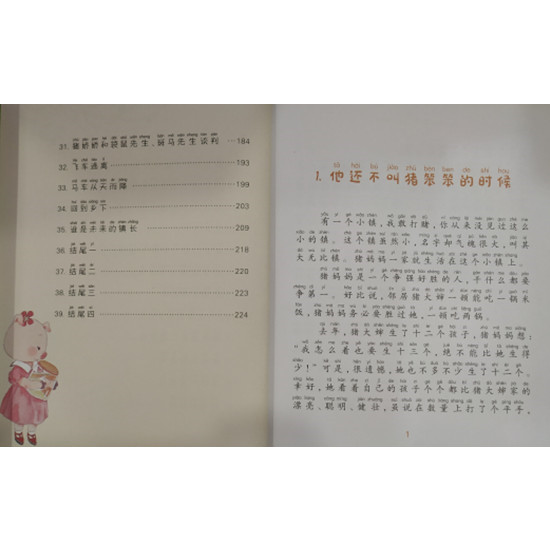 31. 聂娇娇和袋鼠先生、斑马先生谈判 …184
32. 飞车逃离 … 193
33. 马车从天而降 … 199
34. 回到乡下 … 203
35. 谁是未来的镇长 … 209
36. 结尾一 … 218
37. 结尾二 … 220
38. 结尾三 … 223
39. 结尾四 … 224
1. 他还不叫猪笨笨的时候
有一个小镇，我敢打赌，你从来没见过这么
小的镇。这个镇虽然小，名字却气魄很大，叫其
大无比镇。猪妈妈一家就生活在这个小镇上。
猪妈妈是一个争强好胜的人，干什么都要
争第一。好比说，邻居猪大婶一顿能吃一锅米
饭，猪妈妈务必要胜过她，一顿吃两锅。
去年，猪大婶生了十二个孩子，猪妈妈想：
“我怎么着也要生十三个，绝不能比她生得
少！”可是，很遗憾，她也不多不少生了十二个。
幸好，她看着自己的孩子个个都比猪大婶家的
漂亮、聪明、健壮，虽说在数量上打了个平手，
1